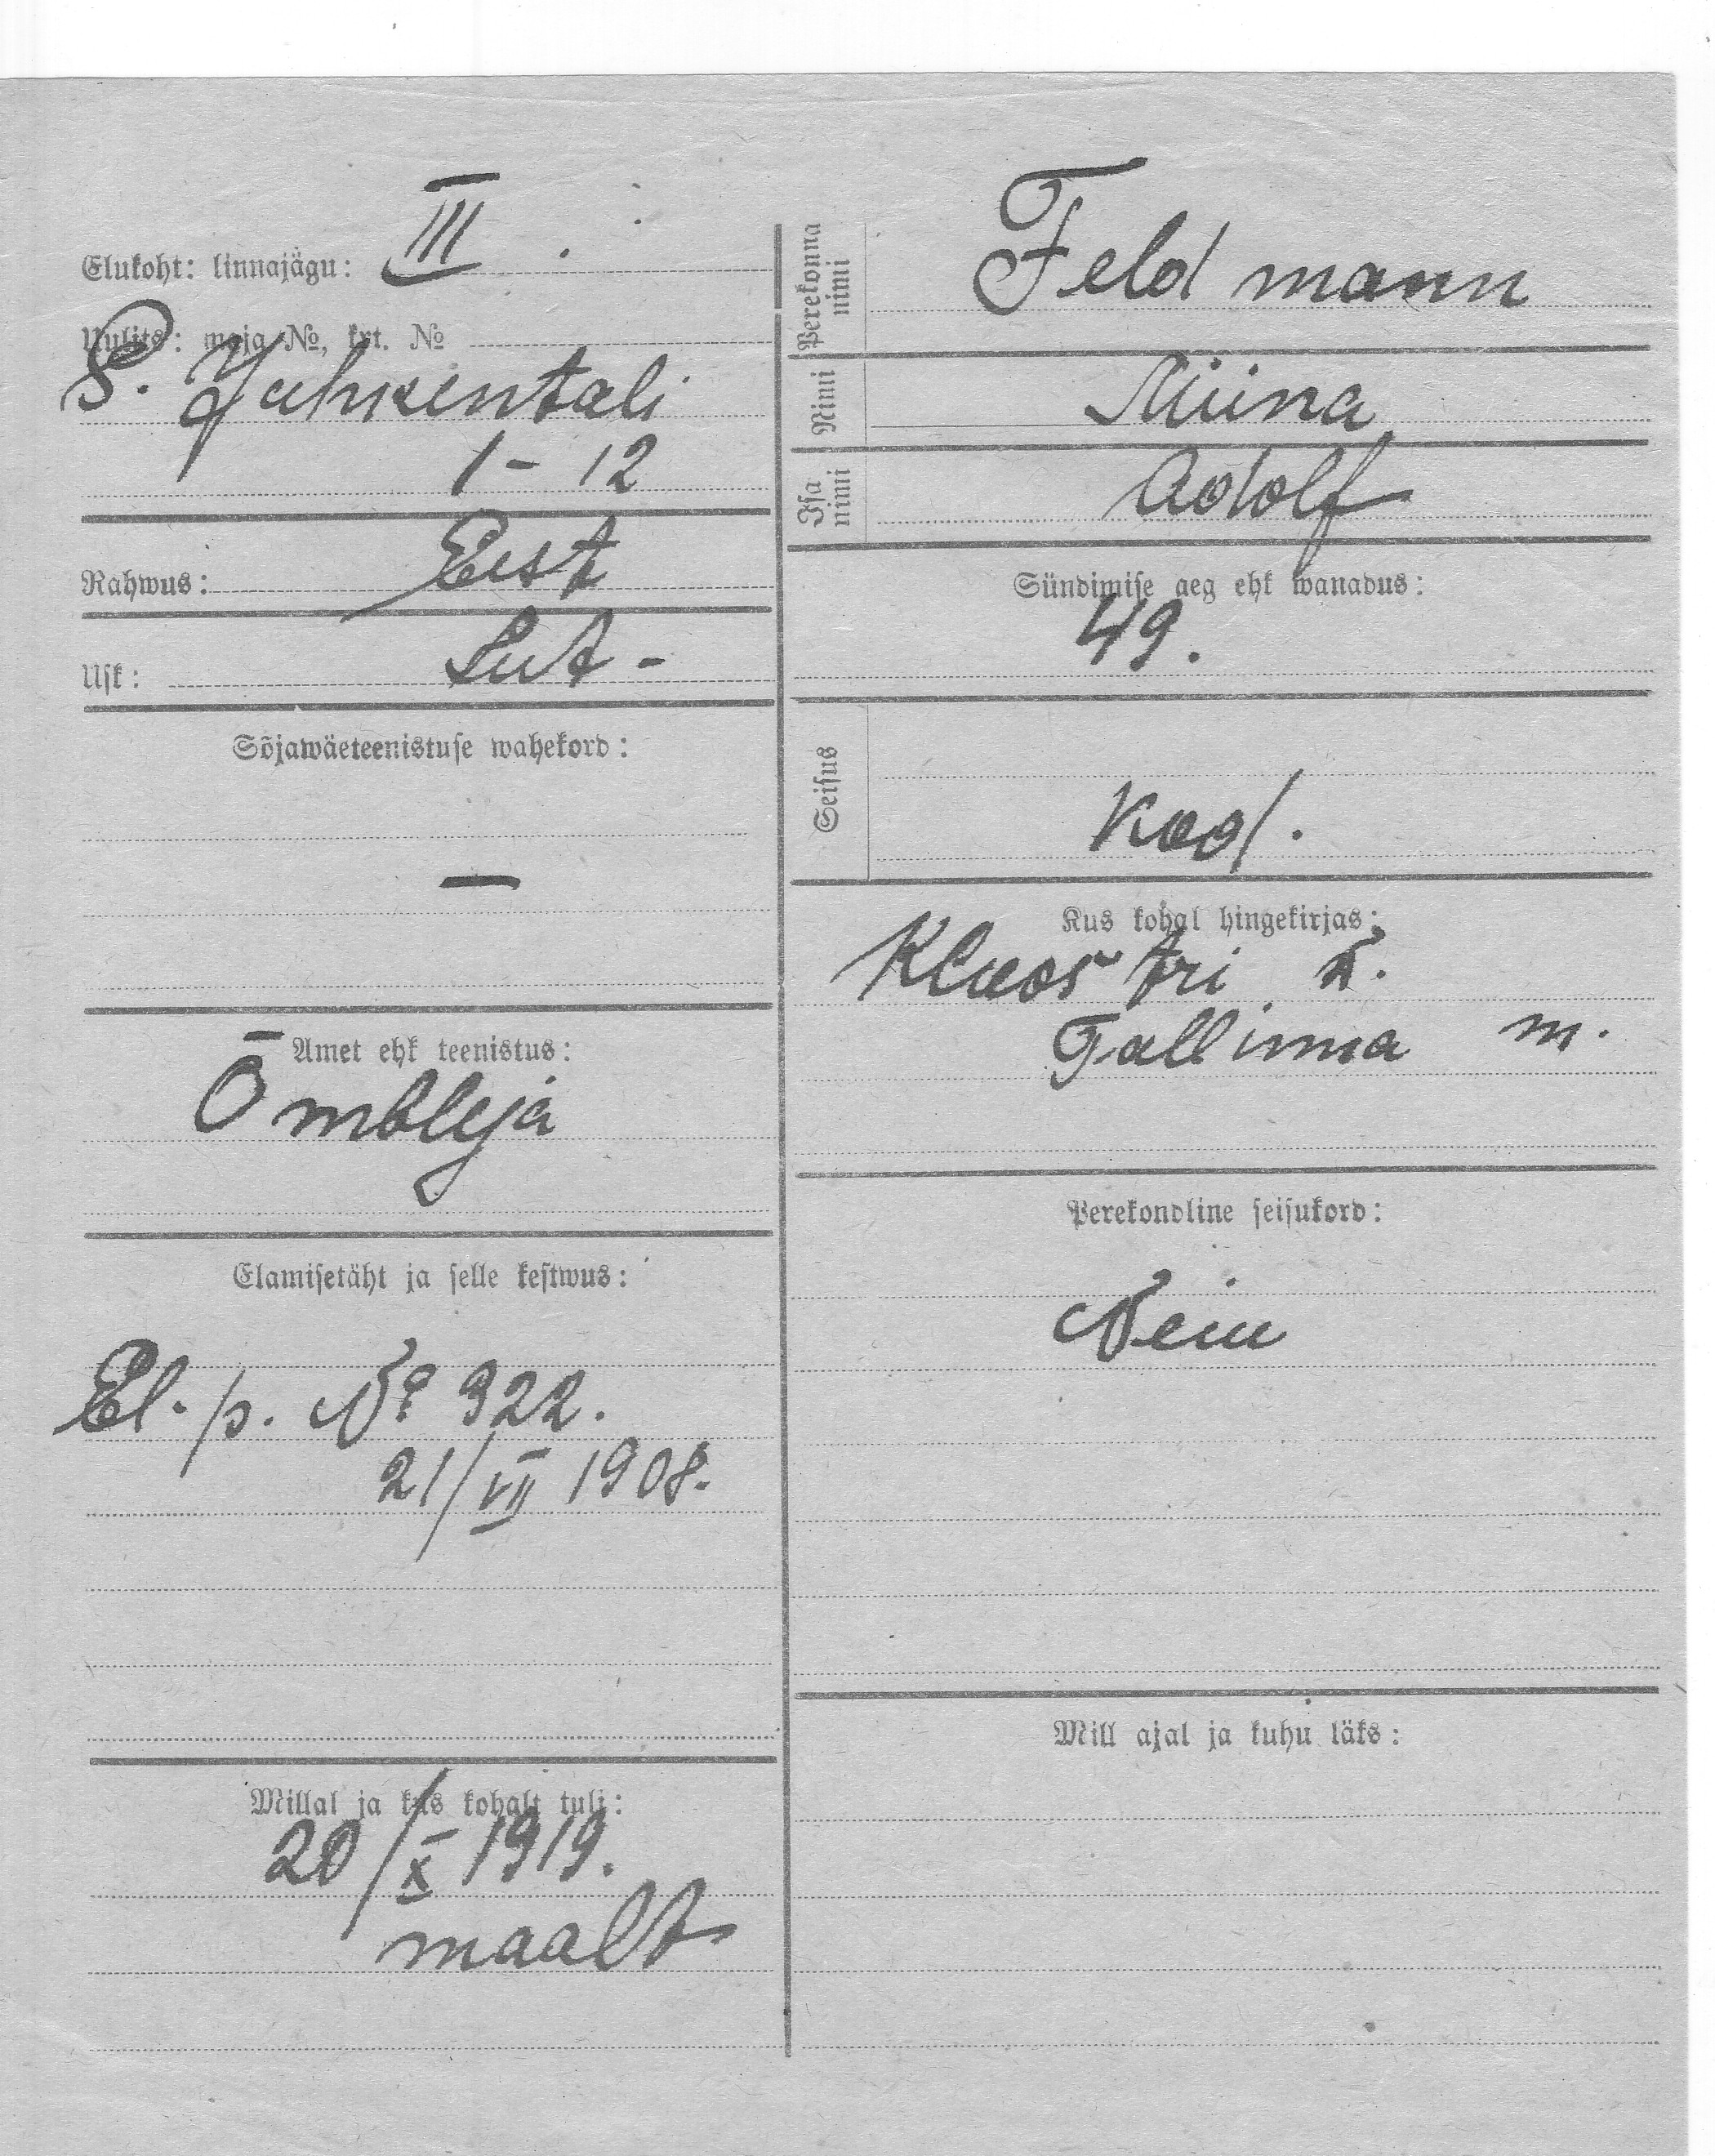 Elukoht: linnajägu: III.
Uulits: maja №, krt. №
S. Juhkentali
1 - 12
Rahwus: Eest
Usk: Lut -
Sõjawäeteenistuse wahekord:
—
Amet ehk teenistus:
Õmbleja
Elamisetäht ja selle kestwus:
El. p. № 322.
21/VII 1908.
Millal ja kus kohalt tuli:
20/X 1919.
maalt
Perekonna nimi Feldmann
Nimi Miina
Isa nimi Adolf
Sündimise aeg ehk wanadus:
49.
Seisus
Kodl.
Kus kohal hingekirjas:
Kloostri
Tallinna m.
Perekondline seisukord:
Neiu
Mill ajal ja kuhu läks: